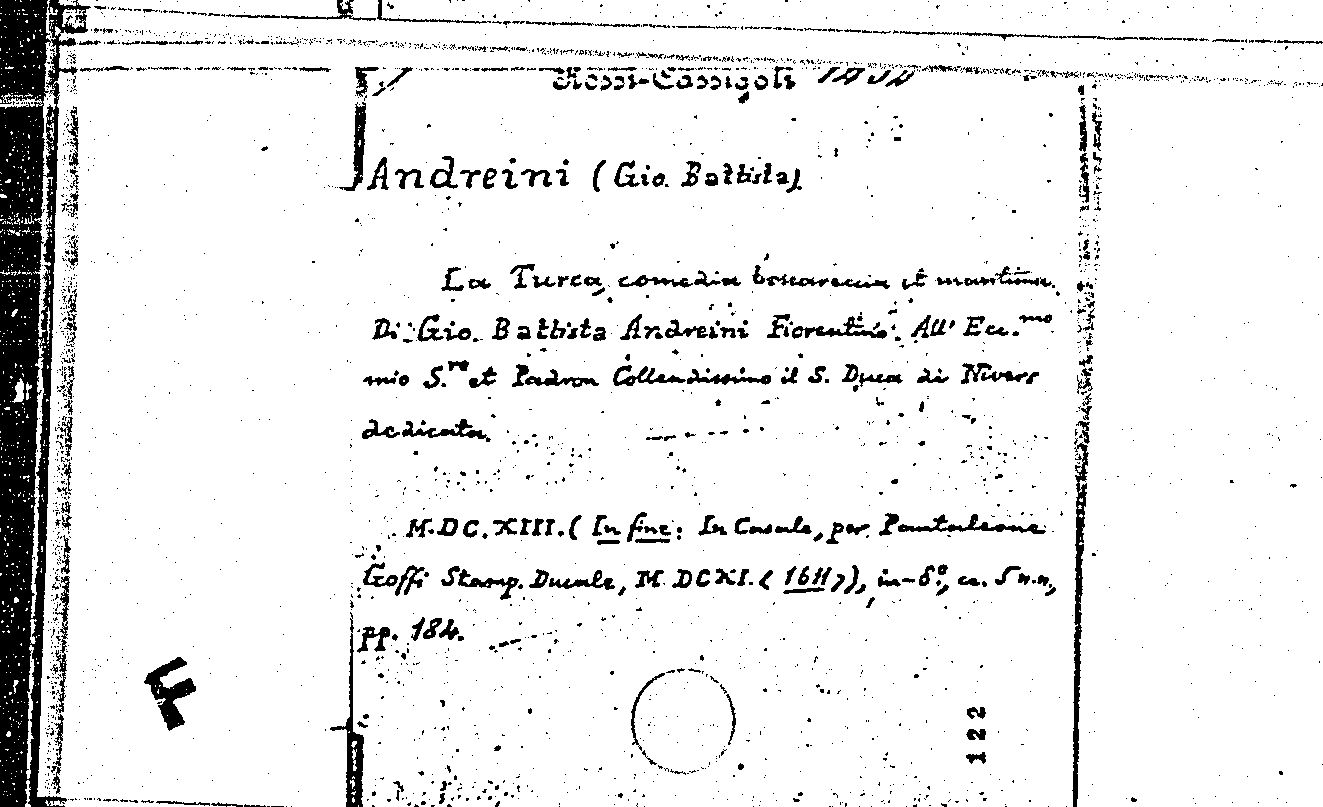 Andreini (Gio. Battista)
La Turca, comedia boscareccia et maritima.
Di Gio. Battista Andreini Fiorentino. All' Ecc.mo
mio S.re et Padron Collendissimo il S. Duca di Nivers
dedicata.
M.DC.XIII. (In fine: In Casale, per Pantaleone
Goffi Stamp. Ducale, M.DCXI. (1611)), in-8°, cc. 5 n.n,
pp. 184.
122